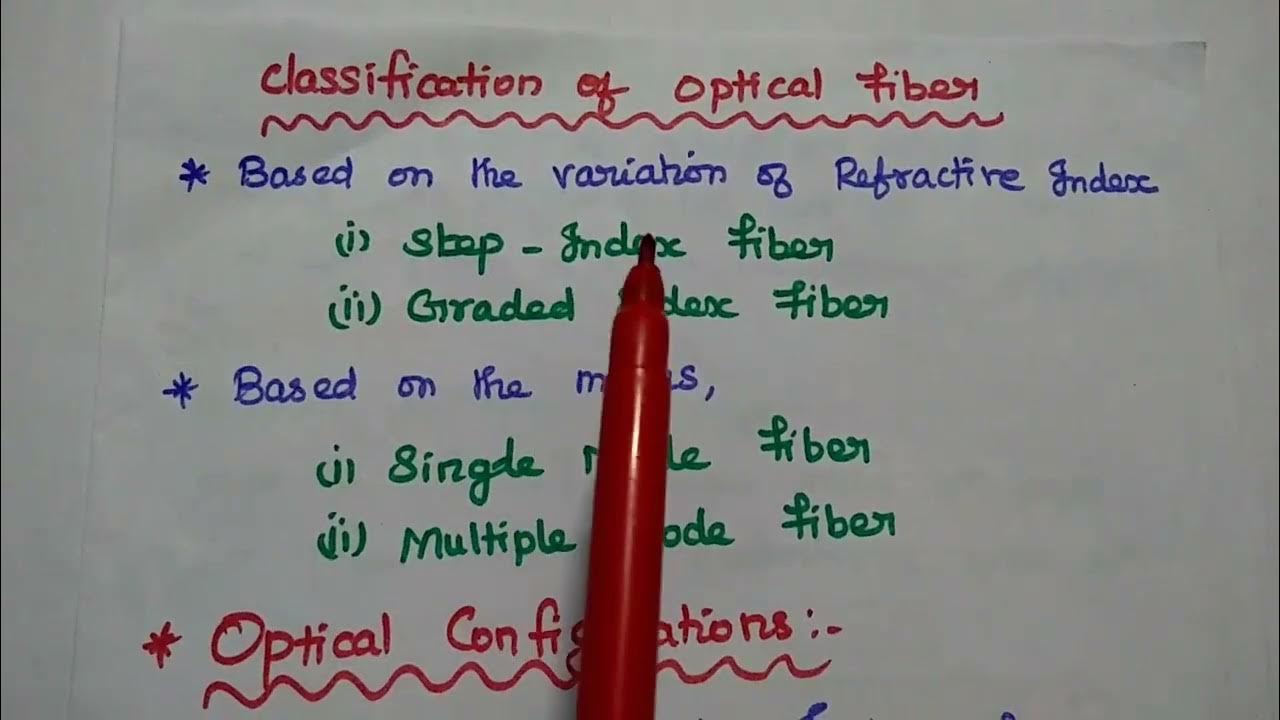 Classification of Optical Fiber
* Based on the variation of Refractive Index
(i) Step - Index Fiber
(ii) Graded Index Fiber
* Based on the modes,
(i) Single Mode Fiber
(ii) Multiple Mode Fiber
* Optical Configurations:-